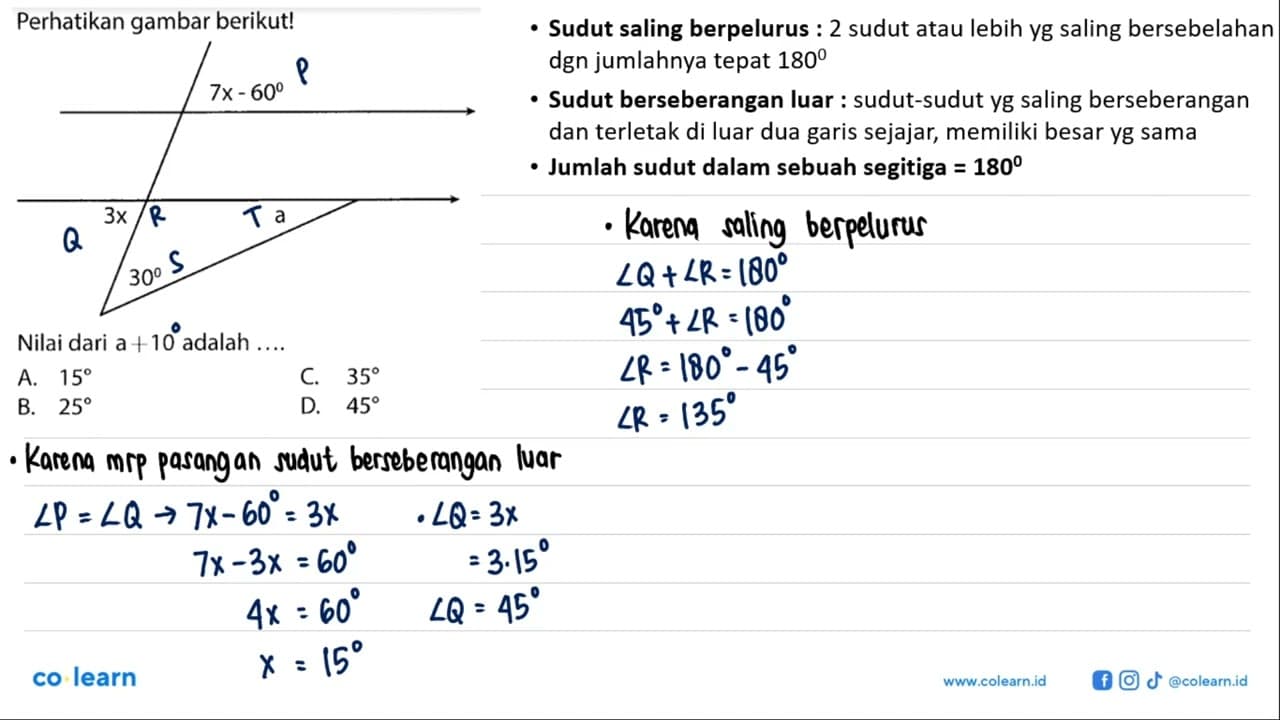 Perhatikan gambar berikut!
7x - 60⁰ P
3x R T a
Q
30⁰ S
Nilai dari a + 10° adalah ....
A. 15° C. 35°
B. 25° D. 45°
• Sudut saling berpelurus : 2 sudut atau lebih yg saling bersebelahan
dgn jumlahnya tepat 180⁰
• Sudut berseberangan luar : sudut-sudut yg saling berseberangan
dan terletak di luar dua garis sejajar, memiliki besar yg sama
• Jumlah sudut dalam sebuah segitiga = 180⁰
• Karena saling berpelurus
∠Q + ∠R = 180°
45° + ∠R = 180°
∠R = 180° - 45°
∠R = 135°
• Karena mrp pasangan sudut berseberangan luar
∠P = ∠Q → 7x - 60° = 3x
7x - 3x = 60°
4x = 60°
x = 15°
• ∠Q = 3x
= 3.15°
∠Q = 45°
co learn
www.colearn.id
@colearn.id